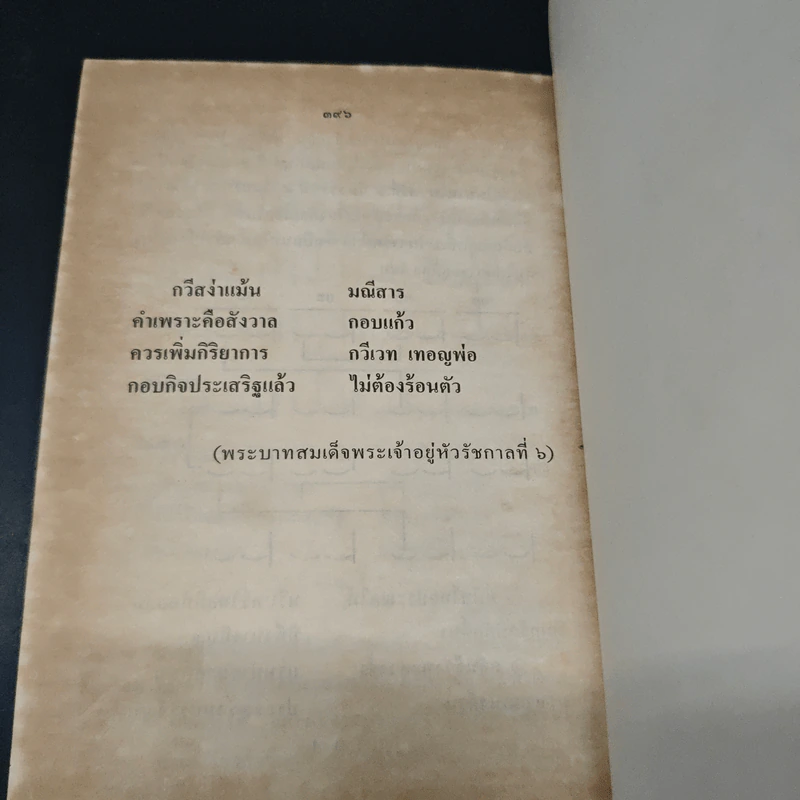 ๓๙๖
กวีสง่าแม้น มณีสาร
คำเพราะคือสังวาล กอบแก้ว
ควรเพิ่มกิริยาการ กวีเวท เทอญพ่อ
กอบกิจประเสริฐแล้ว ไม่ต้องร้อนตัว
(พระบาทสมเด็จพระเจ้าอยู่หัวรัชกาลที่ ๖)